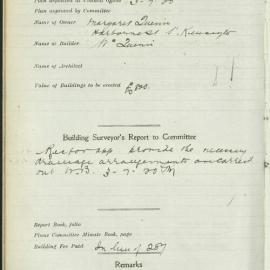 Plan deposited at Council Office 3-7-20
Plan approved by Committee
Name of Owner Margaret Quinn
Harbourne St
Name of Builder Wm Quinn
Name of Architect
Value of Buildings to be erected £800
Building Surveyor's Report to Committee
provide the necessary
drainage arrangements are carried
out W.B. 3-7-20
Report Book, folio
Plans Committee Minute Book, page
Building Fee Paid In lieu of 287
Remarks